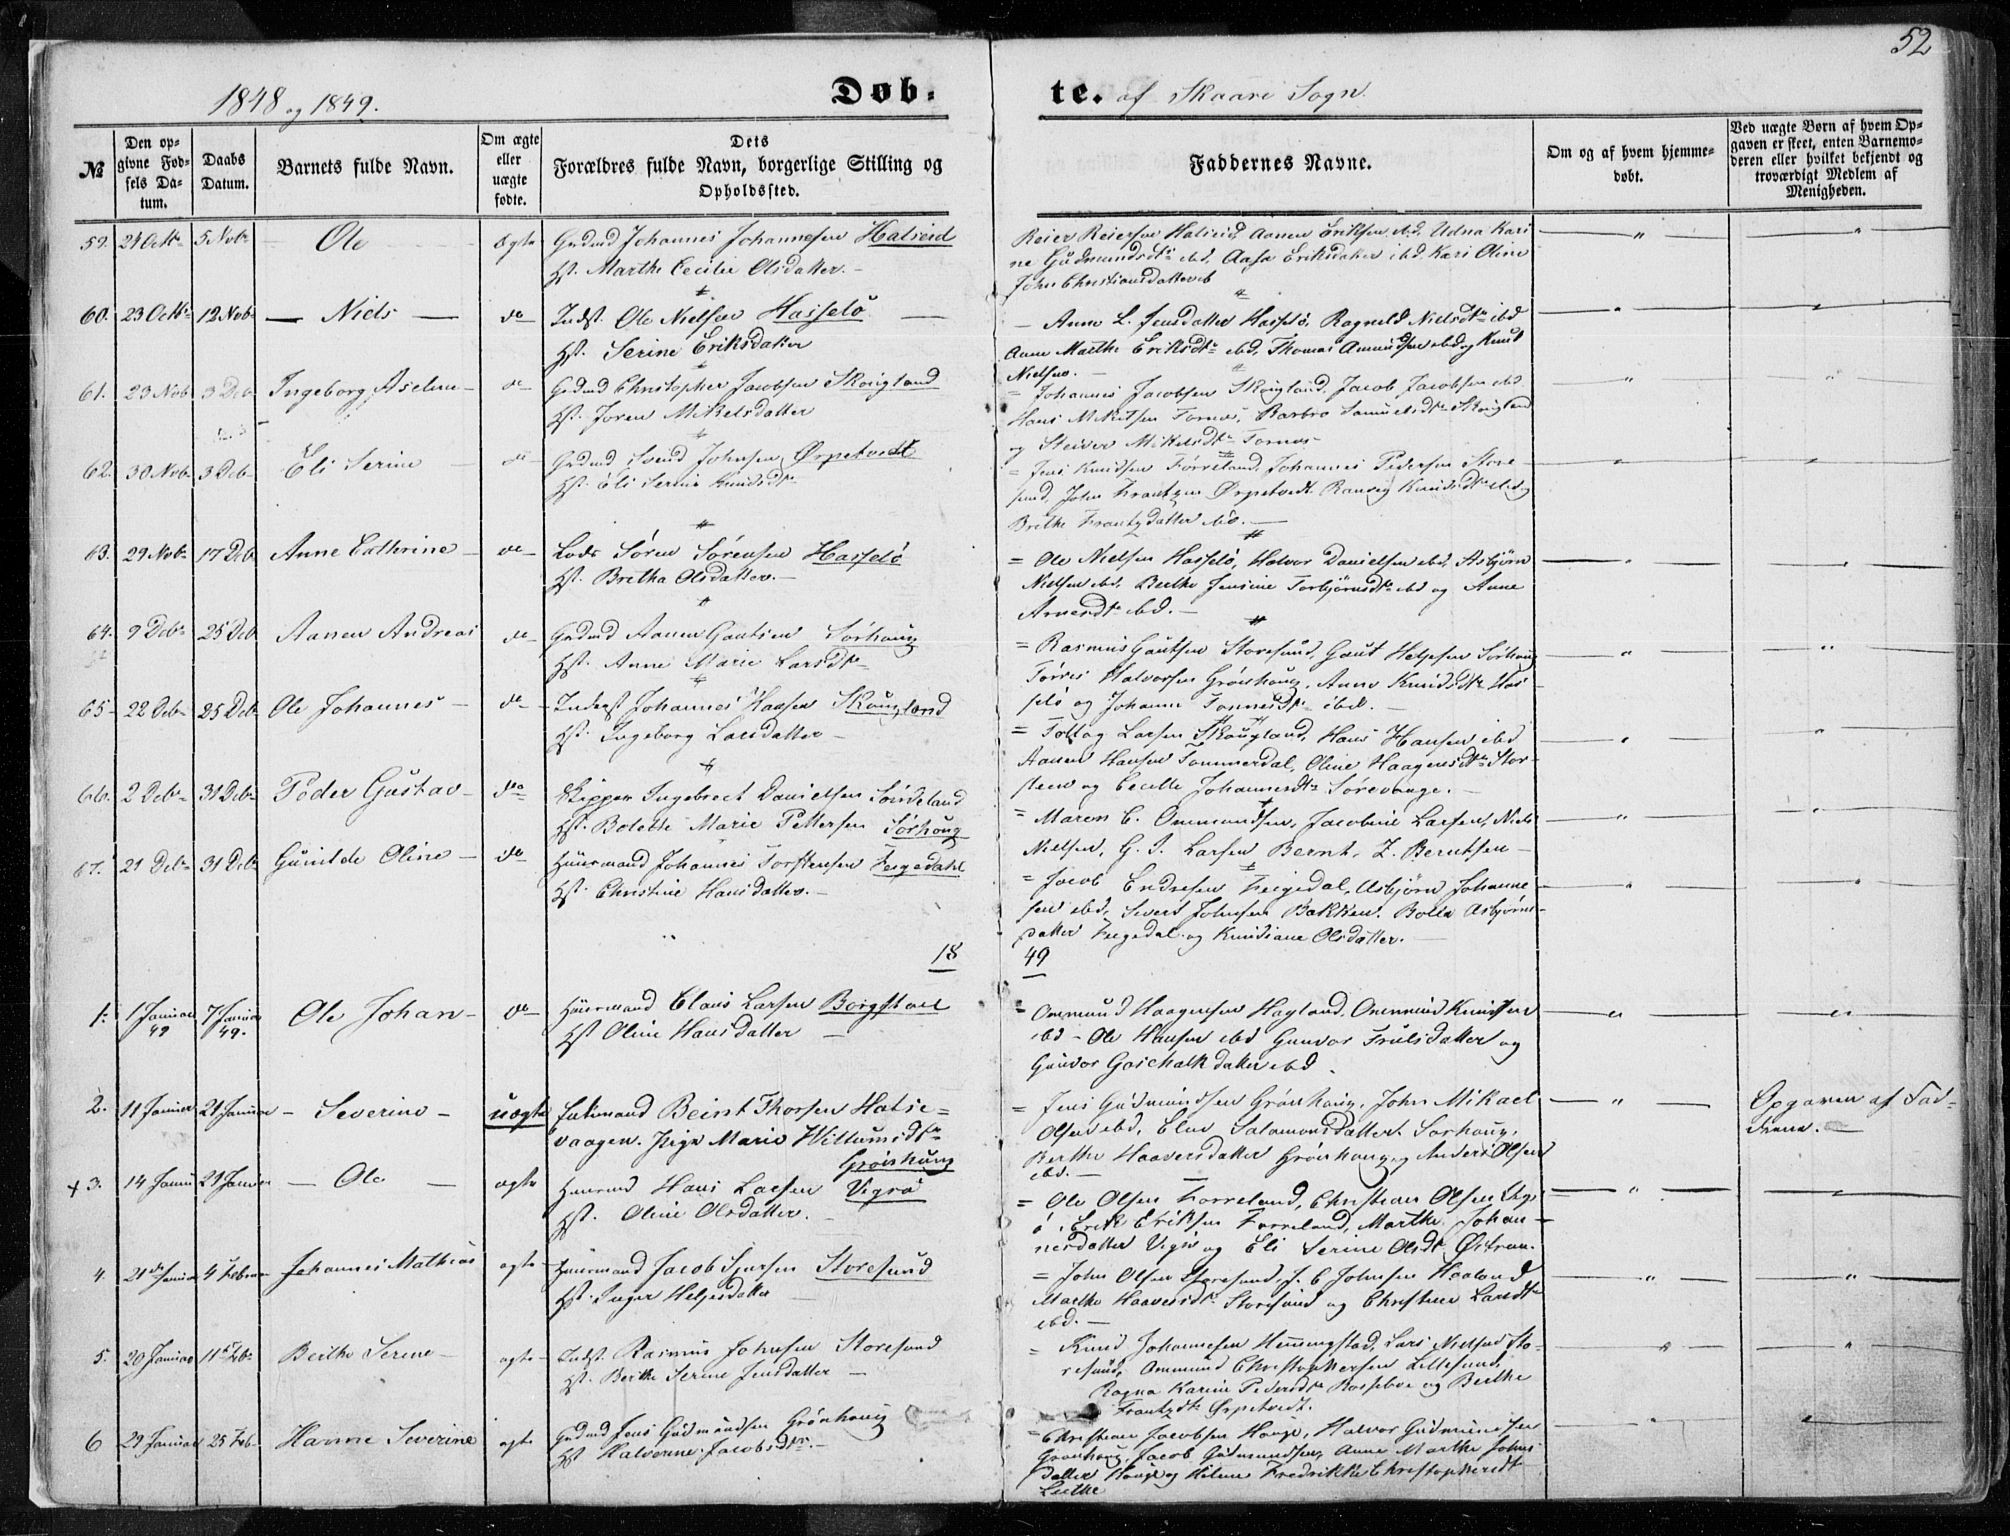 52
1848 og 1849.
Døb-
te. af Skaare Sogn.
№
Den op-
givne Fød-
sels Da-
tum.
Daabs
Datum.
Barnets fulde Navn.
Om ægte
eller
uægte
fødte.
Dets
Forældres fulde Navn, borgerlige Stilling og
Opholdssted.
Faddernes Navne.
Om og af hvem hjemme-
døbt.
Ved uægte Børn af hvem Op-
gaven er skeet, enten Barnemo-
deren eller hvilket bekjendt og
troværdigt Medlem af
Menigheden.
59. 21 Octr 5 Nobr Ole ægte Grdmd Johannes Johannesen Hatseid
Hst. Marthe Cecilie Olsdatter.
Reier Reiersen Hatseid, Aanen Eriksen ibd, Udna Kari
ne Gudmundsdtr ibd, Aasa Eriksdatter ibd. Kari Oline
Johs Christiansdatter ib
60. 23 Octr 12 Nobr Niels do Indst. Ole Nielsen Hasselø
Hst. Serine Eriksdatter
Anne L. Jensdatter Hasselø, Ragnild Nielsdtr ibd
Anne Marthe Eriksdtr ibd, Thomas Amundsen ibd og Knud
Nielsen.
61. 23 Nob 3 Deb Ingeborg Aselin do Grdmd Christopher Jacobsen Skougland
Hst. Joren Mikelsdatter
Johannes Jacobsen Skougland, Jacob Jacobsen ibd
Hans Mikelsen Fornes, Barbro Samuelsdtr Skougland
og Steiner Mikelsdtr Fornes
62. 30 Nob 3 Deb Eli Serine do Grdmd Svend Johnsen Ørpetvedt
Hst. Eli Serine Knudsdtr
Jens Knudsen Førreland, Johannes Pedersen Store
sund, John Frantzen Ørpetvedt, Ranveig Knudsdtr ibd og
Brithe Frantzdatter ibd.
63. 29 Nobr 17 Deb Anne Cathrine do Lods Søren Sørensen Hasselø
Hst. Bretha Olsdatter.
Ole Nielsen Hasselø, Halvor Danielsen ibd, Asbjørn
Nielsen ibd, Berthe Jensine Torbjørnsdtr ibd og Anne
Arnesdtr ibd.
64. 9 Debr 25 Deb Aanen Andreas do Grdmd Aanen Gautsen Sørhaug
Hst. Anne Marie Larsdtr
Rasmus Gautsen Storesund, Gaut Helgesen Sørhaug
Tørres Halvorsen Grønhaug, Anne Knudsdtr Has
selø og Johanne Tonnesdtr ibd.
65 22 Debr 25 Deb Ole Johannes do Inderst Johannes Hansen Skougland
Hst. Ingeborg Larsdatter
Tollag Larsen Skougland, Hans Hansen ibd
Aanen Hansen Tommerdal, Oline Haagensdtr Stor-
steen og Cecilie Johannesdtr Sørevaage.
66. 2 Debr 31 Debr Peder Gustav do Skipper Ingebrect Danielsen Sondeland
Hst. Bolette Marie Pettersen Sørhaug
Maren C. Ommundsen, Jacobine Larsen, Niels
Nielsen, G. I. Larsen Bernt. Z. Berntsen
67. 21 Debr 31 Deb Gunilde Oline do Huusmand Johannes Torstensen Feigedahl
Hst. Christine Hansdatter.
Jacob Endresen Feigedal, Asbjørn Johanne
sen ibd, Sivert Johnsen Bakken. Bolla Asbjørns-
datter Feigedal og Knudiane Olsdatter.
18
49
1. 1 Januar
49 7 Januar
49. Ole Johan do Huusmand Claus Larsen Borgstall
Hst Oline Hansdatter
Ommund Haagensen Hagland, Ommund Knudsen
ibd - Ole Hansen ibd Gunvor Trulsdatter og
Gunvor Goschalkdatter ibd.
2. 11 Januar 21 Januar Severine uægte Enkemand Beint Thorsen Hatse-
vaagen. Pige Marie Willumsdtr
Grønhaug
Jens Gudmundsen Grønhaug, John Mikael
Olsen ibd, Elen Salamonsdatter Sørhaug,
Berthe Haaversdatter Grønhaug og Anders Olsen
ibd.
Opgaven af Fad-
derne.
+ 3. 14 Januar 21 Januar Ole ægte Huusmd Hans Larsen Vigsø
Hst. Oline Olsdatter.
Ole Olsen Førreland, Christian Olsen Vigs
ø, Erik Eriksen Førreland, Marthe Johan-
nesdatter Vigsø og Eli Serine Olsdtr Østrem.
4. 21de Januar 4 Februar Johannes Mathias ægte Huusmand Jacob Sjursen Storesund
Hst. Inger Helgesdatter
John Olsen Storesund, J. C. Johnsen Haaland
Marthe Haaversdtr Storesund og Christine Larsdtr
ibd.
5. 20 Januar 11te Feb Berthe Serine ægte Indst. Rasmus Johnsen Storesund
Hst. Berthe Serine Jensdatter
Knud Johannesen Hemingstad, Lars Nielsen Sto-
resund, Ommund Christophersen Lillesund,
Ragna Karine Pedersdtr Rossebøe og Berthe
Frantzdtr Ørpetvedt.
6 29 Januar 25 Feb Hanne Severine ægte Grdmd Jens Gudmundsen Grønhaug
Hst Halvorine Jacobsdtr.
Christian Jacobsen Hauge, Halvor Gudmundsen
Grønhaug, Jacob Gudmundsen, Anne Marthe Johns
datter Hauge og Helene Fredrikke Christophersdtr